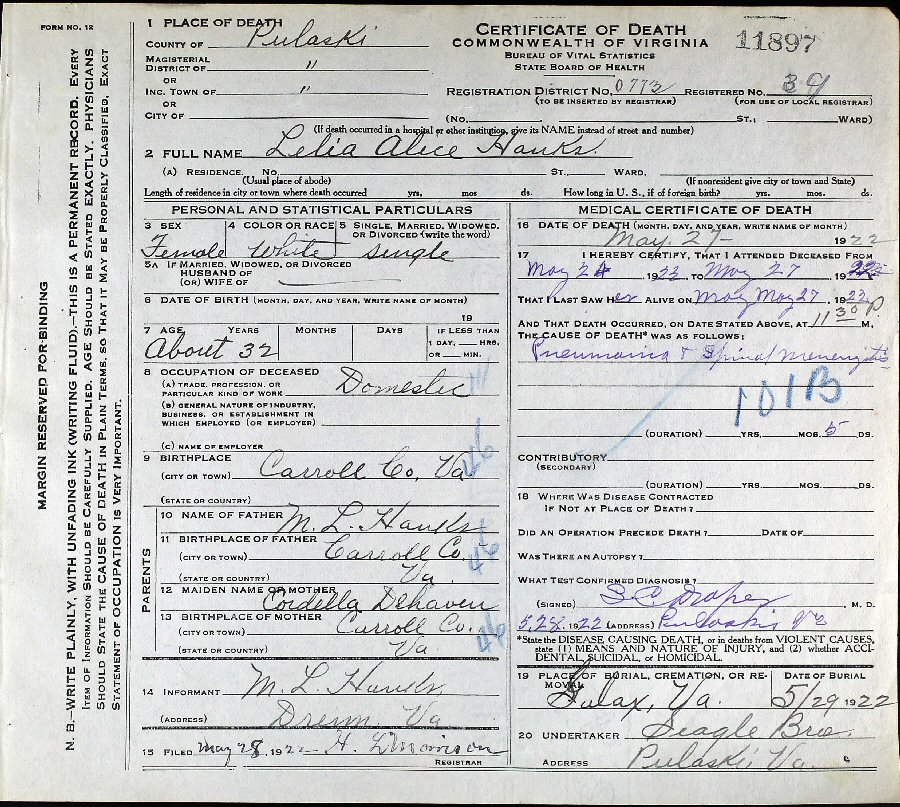 FORM NO. 12
MARGIN RESERVED FOR BINDING
N. B.—WRITE PLAINLY, WITH UNFADING INK (WRITING FLUID).—THIS IS A PERMANENT RECORD. EVERY
ITEM OF INFORMATION SHOULD BE CAREFULLY SUPPLIED. AGE SHOULD BE STATED EXACTLY. PHYSICIANS
SHOULD STATE THE CAUSE OF DEATH IN PLAIN TERMS, SO THAT IT MAY BE PROPERLY CLASSIFIED. EXACT
STATEMENT OF OCCUPATION IS VERY IMPORTANT.
1 PLACE OF DEATH
COUNTY OF Pulaski
MAGISTERIAL
DISTRICT OF "
OR
INC. TOWN OF "
OR
CITY OF
CERTIFICATE OF DEATH
COMMONWEALTH OF VIRGINIA
BUREAU OF VITAL STATISTICS
STATE BOARD OF HEALTH
11897
REGISTRATION DISTRICT NO. 0773 REGISTERED NO. 39
(TO BE INSERTED BY REGISTRAR) (FOR USE OF LOCAL REGISTRAR)
(NO. ST.; WARD)
(If death occurred in a hospital or other institution, give its NAME instead of street and number)
2 FULL NAME Lelia Alice Hanks
(A) RESIDENCE. NO. ST., WARD.
(Usual place of abode) (If nonresident give city or town and State)
Length of residence in city or town where death occurred yrs. mos ds. How long in U. S., if of foreign birth? yrs. mos. ds.
PERSONAL AND STATISTICAL PARTICULARS
3 SEX 4 COLOR OR RACE 5 SINGLE, MARRIED, WIDOWED, OR DIVORCED (write the word)
Female White single
5A IF MARRIED, WIDOWED, OR DIVORCED
HUSBAND OF
(OR) WIFE OF
6 DATE OF BIRTH (MONTH, DAY, AND YEAR, WRITE NAME OF MONTH)
19
7 AGE YEARS MONTHS DAYS IF LESS THAN
1 DAY, HRS.
OR MIN.
About 32
8 OCCUPATION OF DECEASED
(A) TRADE, PROFESSION, OR
PARTICULAR KIND OF WORK Domestic
(B) GENERAL NATURE OF INDUSTRY,
BUSINESS, OR ESTABLISHMENT IN
WHICH EMPLOYED (OR EMPLOYER)
(C) NAME OF EMPLOYER
9 BIRTHPLACE
(CITY OR TOWN) Carroll Co, Va 46
(STATE OR COUNTRY)
PARENTS
10 NAME OF FATHER M. L. Hanks
11 BIRTHPLACE OF FATHER
(CITY OR TOWN) Carroll Co. 46
(STATE OR COUNTRY) Va
12 MAIDEN NAME OF MOTHER Cordella Dehaven
13 BIRTHPLACE OF MOTHER
(CITY OR TOWN) Carroll Co. 46
(STATE OR COUNTRY) Va
14 INFORMANT M. L. Hanks
(ADDRESS) Va
15 FILED May 28, 1922 H. L. Morrison
REGISTRAR
MEDICAL CERTIFICATE OF DEATH
16 DATE OF DEATH (MONTH, DAY, AND YEAR, WRITE NAME OF MONTH)
May. 27- 1922
17 I HEREBY CERTIFY, THAT I ATTENDED DECEASED FROM
May 24 1923 TO May 27 1922
THAT I LAST SAW HER ALIVE ON May May 27, 1922
AND THAT DEATH OCCURRED, ON DATE STATED ABOVE, AT 11 30 P M.
THE CAUSE OF DEATH* WAS AS FOLLOWS:
Pneumonia & Spinal Menengitis
101B
(DURATION) YRS. MOS. 5 DS.
CONTRIBUTORY
(SECONDARY)
(DURATION) YRS. MOS. DS.
18 WHERE WAS DISEASE CONTRACTED
IF NOT AT PLACE OF DEATH?
DID AN OPERATION PRECEDE DEATH? DATE OF
WAS THERE AN AUTOPSY?
WHAT TEST CONFIRMED DIAGNOSIS?
(SIGNED) S. O. Draper M. D.
5.28, 1922 (ADDRESS) Pulaski Va
*State the DISEASE CAUSING DEATH, or in deaths from VIOLENT CAUSES,
state (1) MEANS AND NATURE OF INJURY, and (2) whether ACCIDENTAL, SUICIDAL, or HOMICIDAL.
19 PLACE OF BURIAL, CREMATION, OR REMOVAL DATE OF BURIAL
Galax, Va. 5/29 1922
20 UNDERTAKER Seagle Bros.
ADDRESS Pulaski Va.